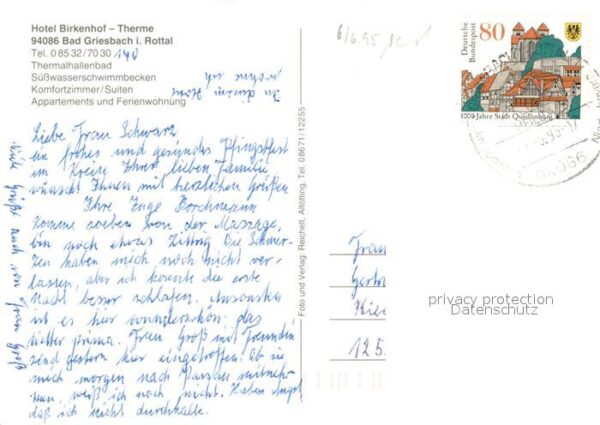 Hotel Birkenhof – Therme
94086 Bad Griesbach i. Rottal
Tel. 0 85 32/70 30 140
Thermalhallenbad
Süßwasserschwimmbecken
Komfortzimmer/Suiten
Appartements und Ferienwohnung
In diesem Hotel
wohne ich
Liebe Frau Schwarz
ein frohes und gesundes Pfingstfest
im Kreise Ihrer lieben Familie
wünscht Ihnen mit herzlichen Grüßen
Ihre Inge
Komme soeben von der Massage,
bin noch etwas Die Schmer-
zen haben mich noch nicht ver-
lassen, aber ich konnte die erste
Nacht besser schlafen. Ansonsten
ist es hier wunderschön, das
Wetter prima. Frau Groß mit Freunden
sind gestern hier eingetroffen. Ob sie
mich morgen nach Passau mitneh-
men, weiß ich noch nicht. Haben Angst
daß ich nicht durchhalte.
Liebe Grüße auch von Frau Groß
Foto und Verlag: Reichelt, Altötting, Tel. 08671/12255
6/6.95
Deutsche
Bundespost
80
1000 Jahre Stadt Quedlinburg
94086
Frau
125
privacy protection
Datenschutz